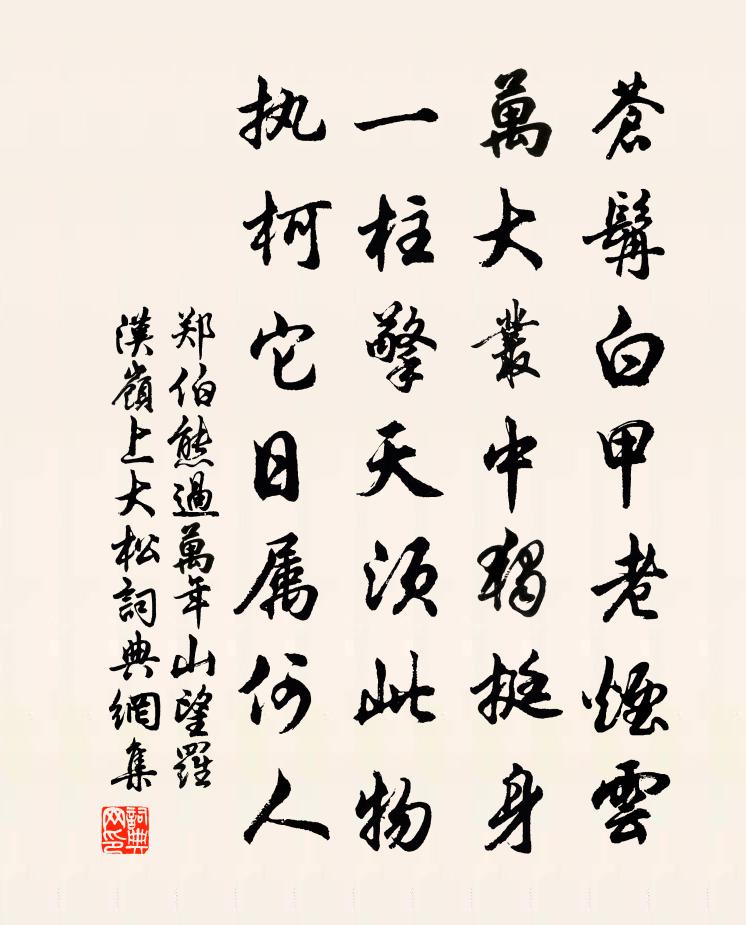 蒼髯白甲老煙雲
萬大叢中獨挺身
一柱擎天須此物
执柯它日属何人
郑伯熊過萬年山望羅
漢嶺上大松詞典網集
詞典
网印